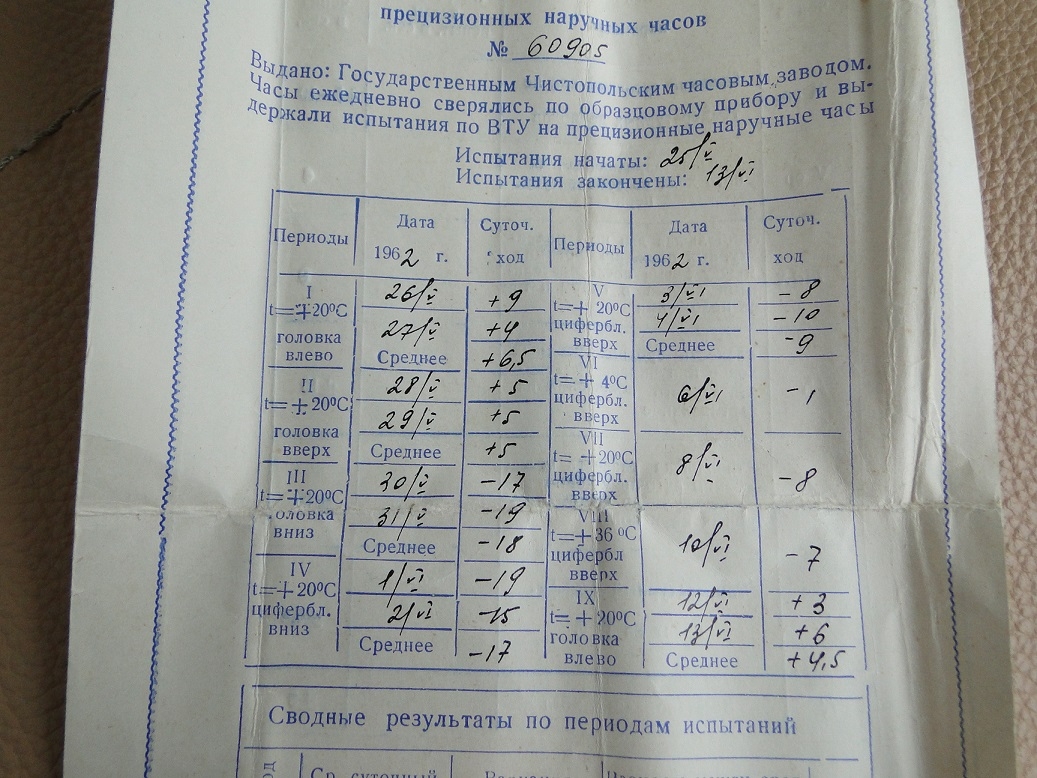 прецизионных наручных часов
№ 60905
Выдано: Государственным Чистопольским часовым заводом.
Часы ежедневно сверялись по образцовому прибору и вы-
держали испытания по ВТУ на прецизионные наручные часы
Испытания начаты: 25/V
Испытания закончены: 13/VI
Периоды Дата 1962 г. Суточ. ход Периоды Дата 1962 г. Суточ. ход
I
t=+20°С
головка
влево
26/V +9
27/V +4
Среднее +6,5
II
t=+20°С
головка
вверх
28/V +5
29/V +5
Среднее +5
III
t=+20°С
головка
вниз
30/V -17
31/V -19
Среднее -18
IV
t=+20°С
цифербл.
вниз
1/VI -19
2/VI -15
Среднее -17
V
t=+20°С
цифербл.
вверх
3/VI -8
4/VI -10
Среднее -9
VI
t=+4°С
цифербл.
вверх
6/VI -1
VII
t=+20°С
цифербл.
вверх
8/VI -8
VIII
t=+36°С
цифербл
вверх
10/VI -7
IX
t=+20°С
головка
влево
12/VI +3
13/VI +6
Среднее +4,5
Сводные результаты по периодам испытаний
Ср. суточный